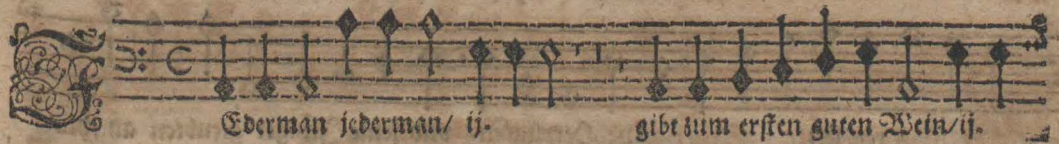 JEderman jederman/ ij. gibt zum ersten guten Wein/ ij.